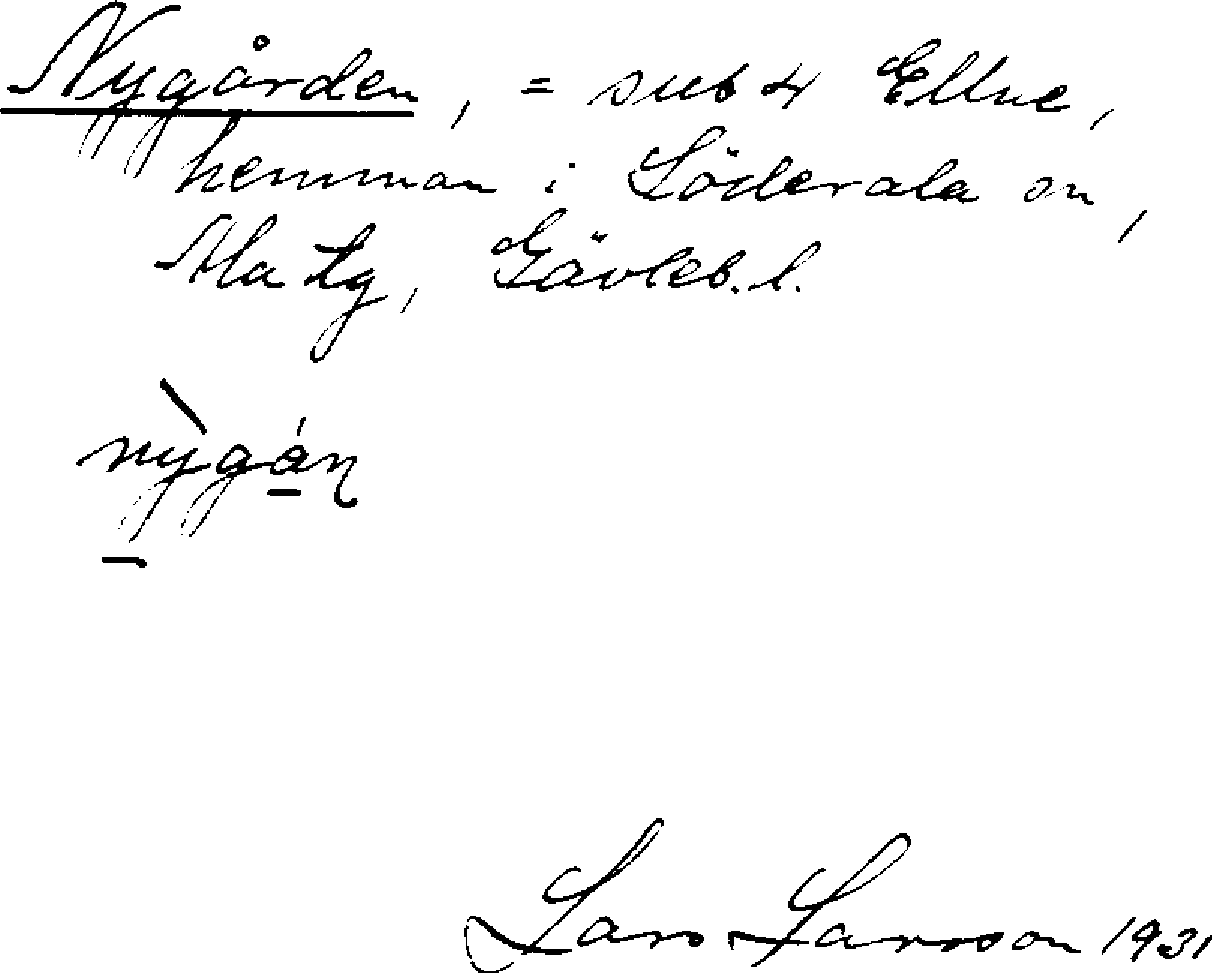 Nygården, = sub 4 Ellne,
hemman i Söderala sn,
Ala tg, Gävleb. l.
nỳgáɳ
Lars Larsson 1931